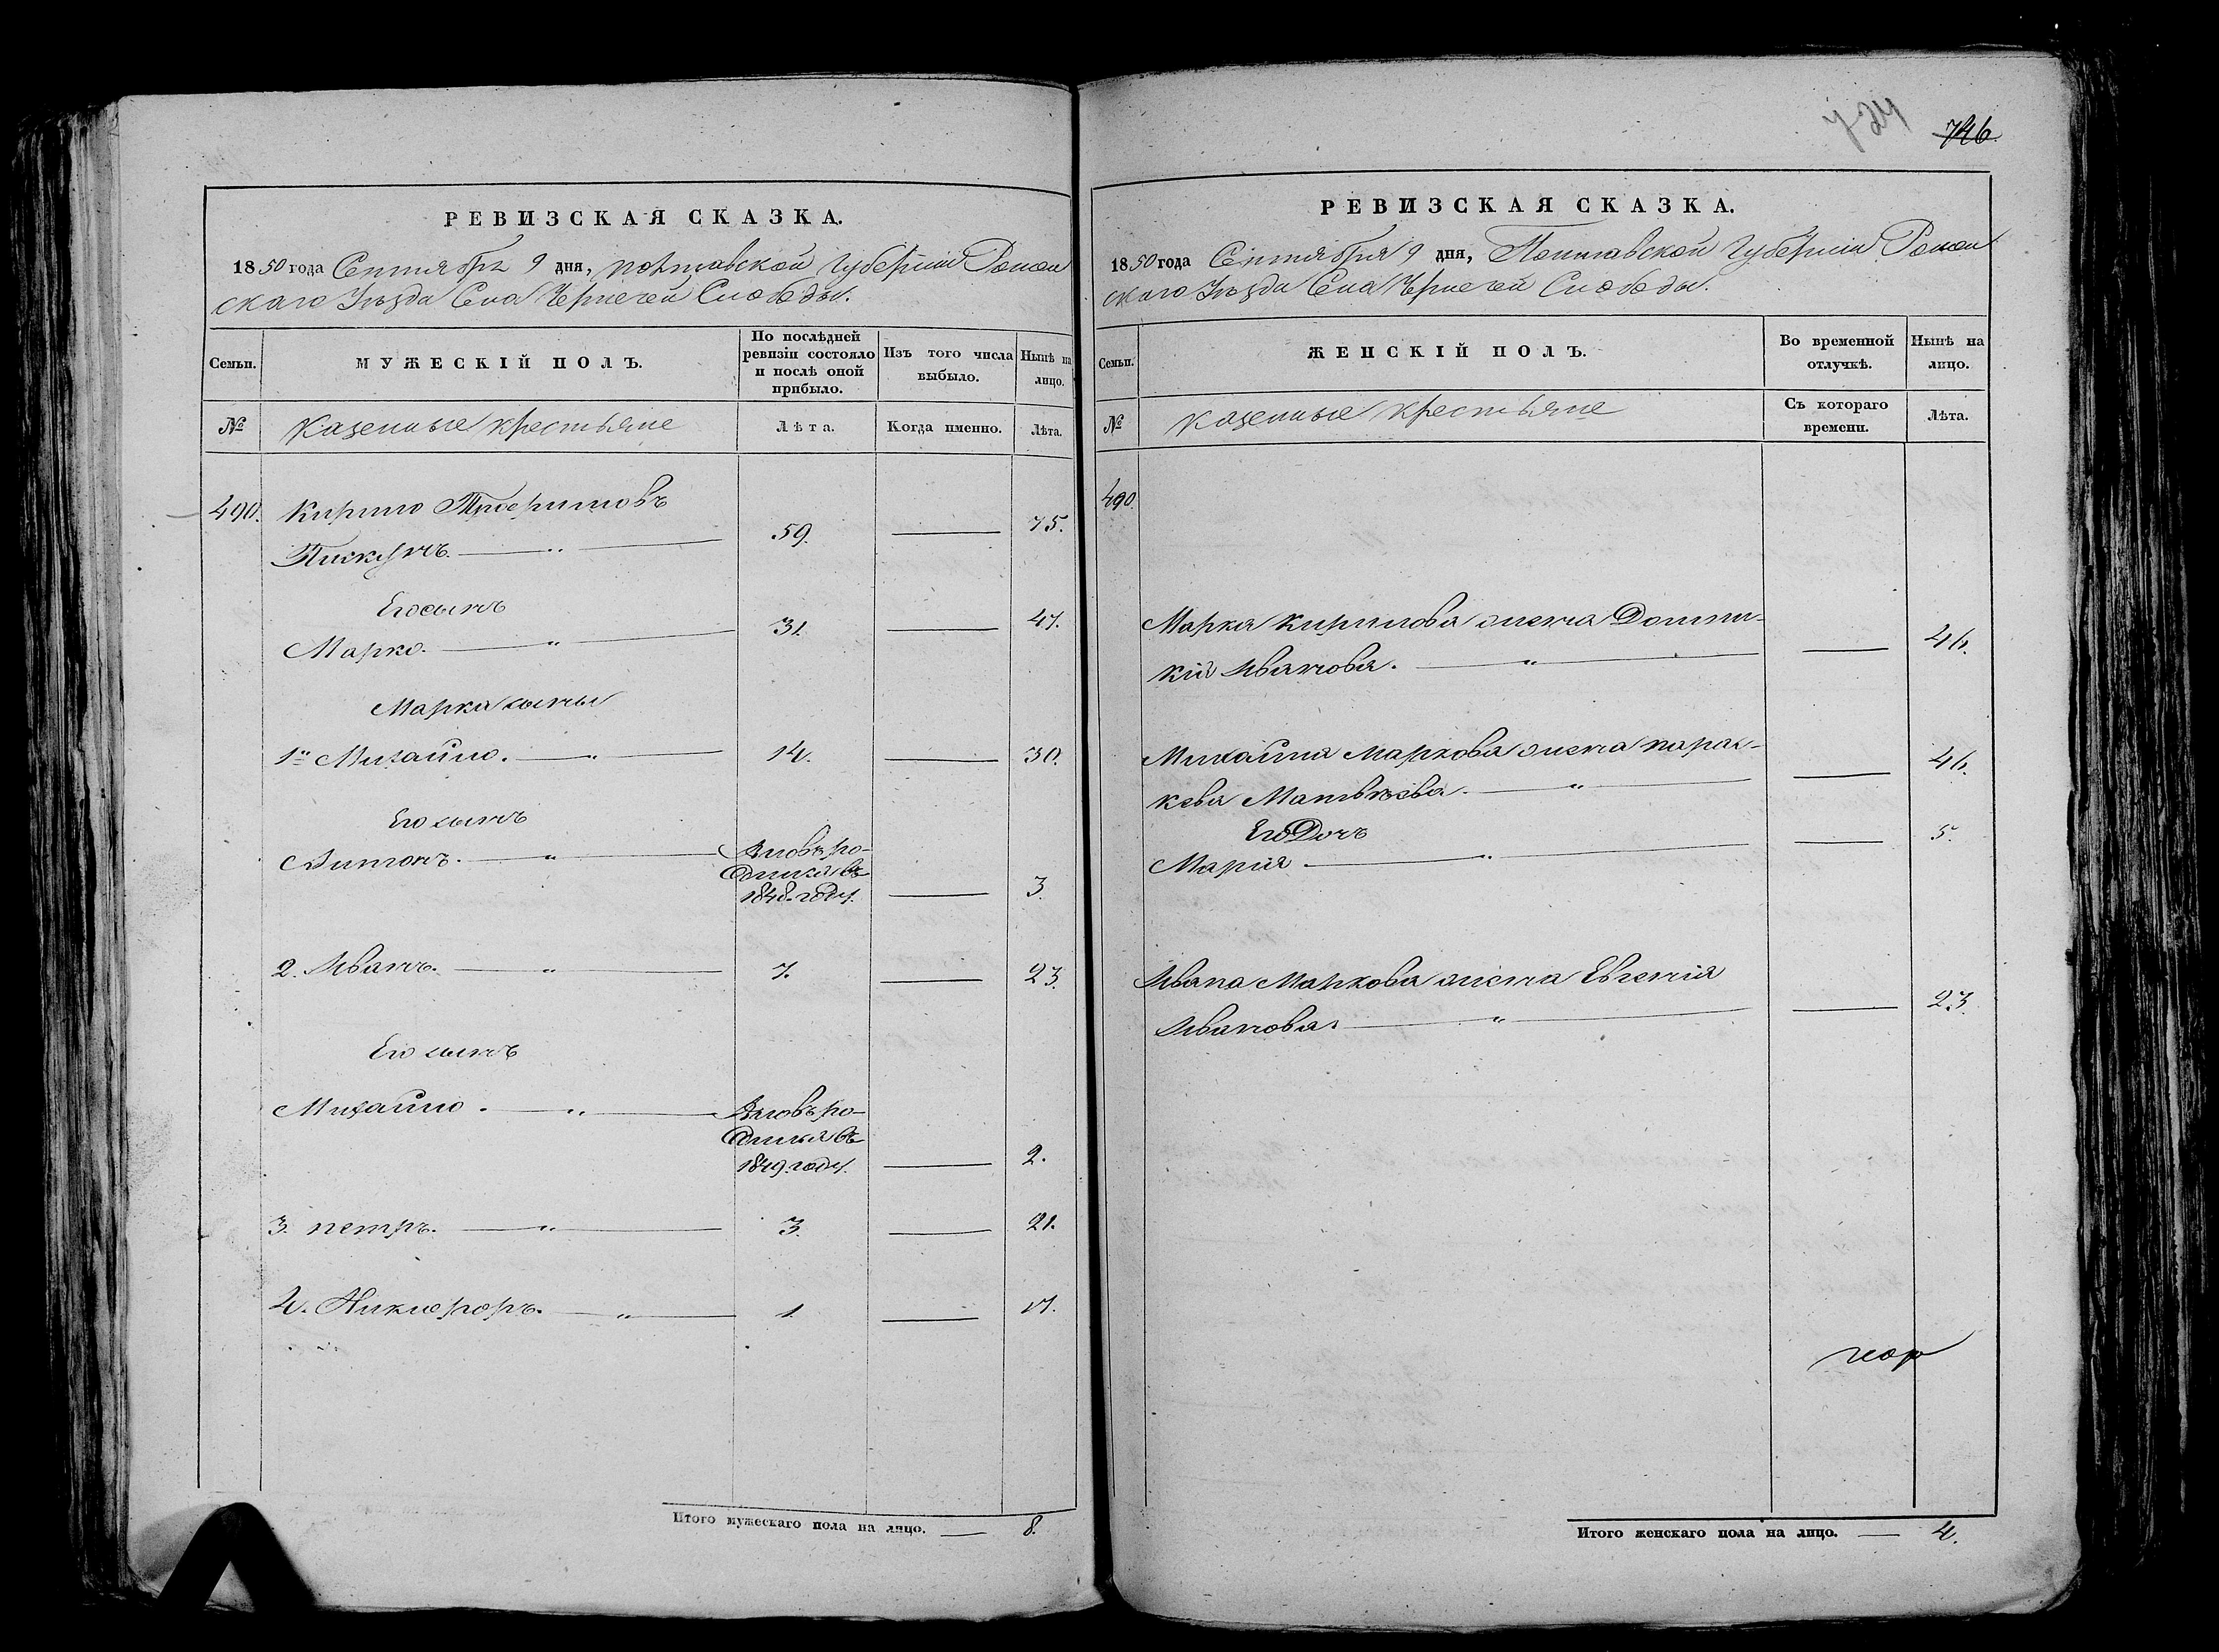 724 746.
РЕВИЗСКАЯ СКАЗКА.
1850 года Сентября 9 дня, Полтавской Губерніи Ромен
скаго Уѣзда Села Чернечей Слободы.
Семьи.
МУЖЕСКІЙ ПОЛЪ.
По послѣдней ревизіи состояло и послѣ оной прибыло.
Изъ того числа выбыло.
Нынѣ на лицо.
№
Казенные крестьяне
Лѣта.
Когда именно.
Лѣта.
490. Кирило Трофимовъ
Пискунъ. 59. 75.
Его сынъ
Марко. 31. 47.
Марка сыны
1й Михайло. 14. 30.
Его сынъ
Антонъ. Вновь ро-
дился въ
1848. году. 3.
2. Иванъ. 7. 23.
Его сынъ
Михайло. Вновь ро-
дился въ
1849. году. 2.
3. Петръ. 3. 21.
4. Никифоръ. 1. 17.
Итого мужескаго пола на лицо. 8.
РЕВИЗСКАЯ СКАЗКА.
1850 года Сентября 9 дня, Полтавской Губерніи Ромен
скаго Уѣзда Села Чернечей Слободы.
Семьи.
ЖЕНСКІЙ ПОЛЪ.
Во временной отлучкѣ.
Нынѣ на лицо.
№
Казенные крестьяне
Съ котораго времени.
Лѣта.
490.
Марка Кирилова жена Домни-
кія Иванова. 46.
Михайла Маркова жена Парас-
кева Матвѣева. 46.
Его Дочь
Марія 5.
Ивана Маркова жена Евгенія
Иванова. 23.
Итого женскаго пола на лицо. 4.